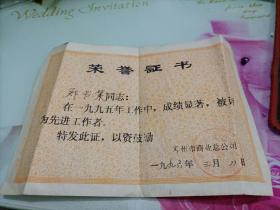 Wedding Invitation
荣誉证书
郑书荣同志:
在一九九五年工作中,成绩显著,被评
为先进工作者.
特发此证,以资鼓励
州市商业总公司
一九九六年 三月 日